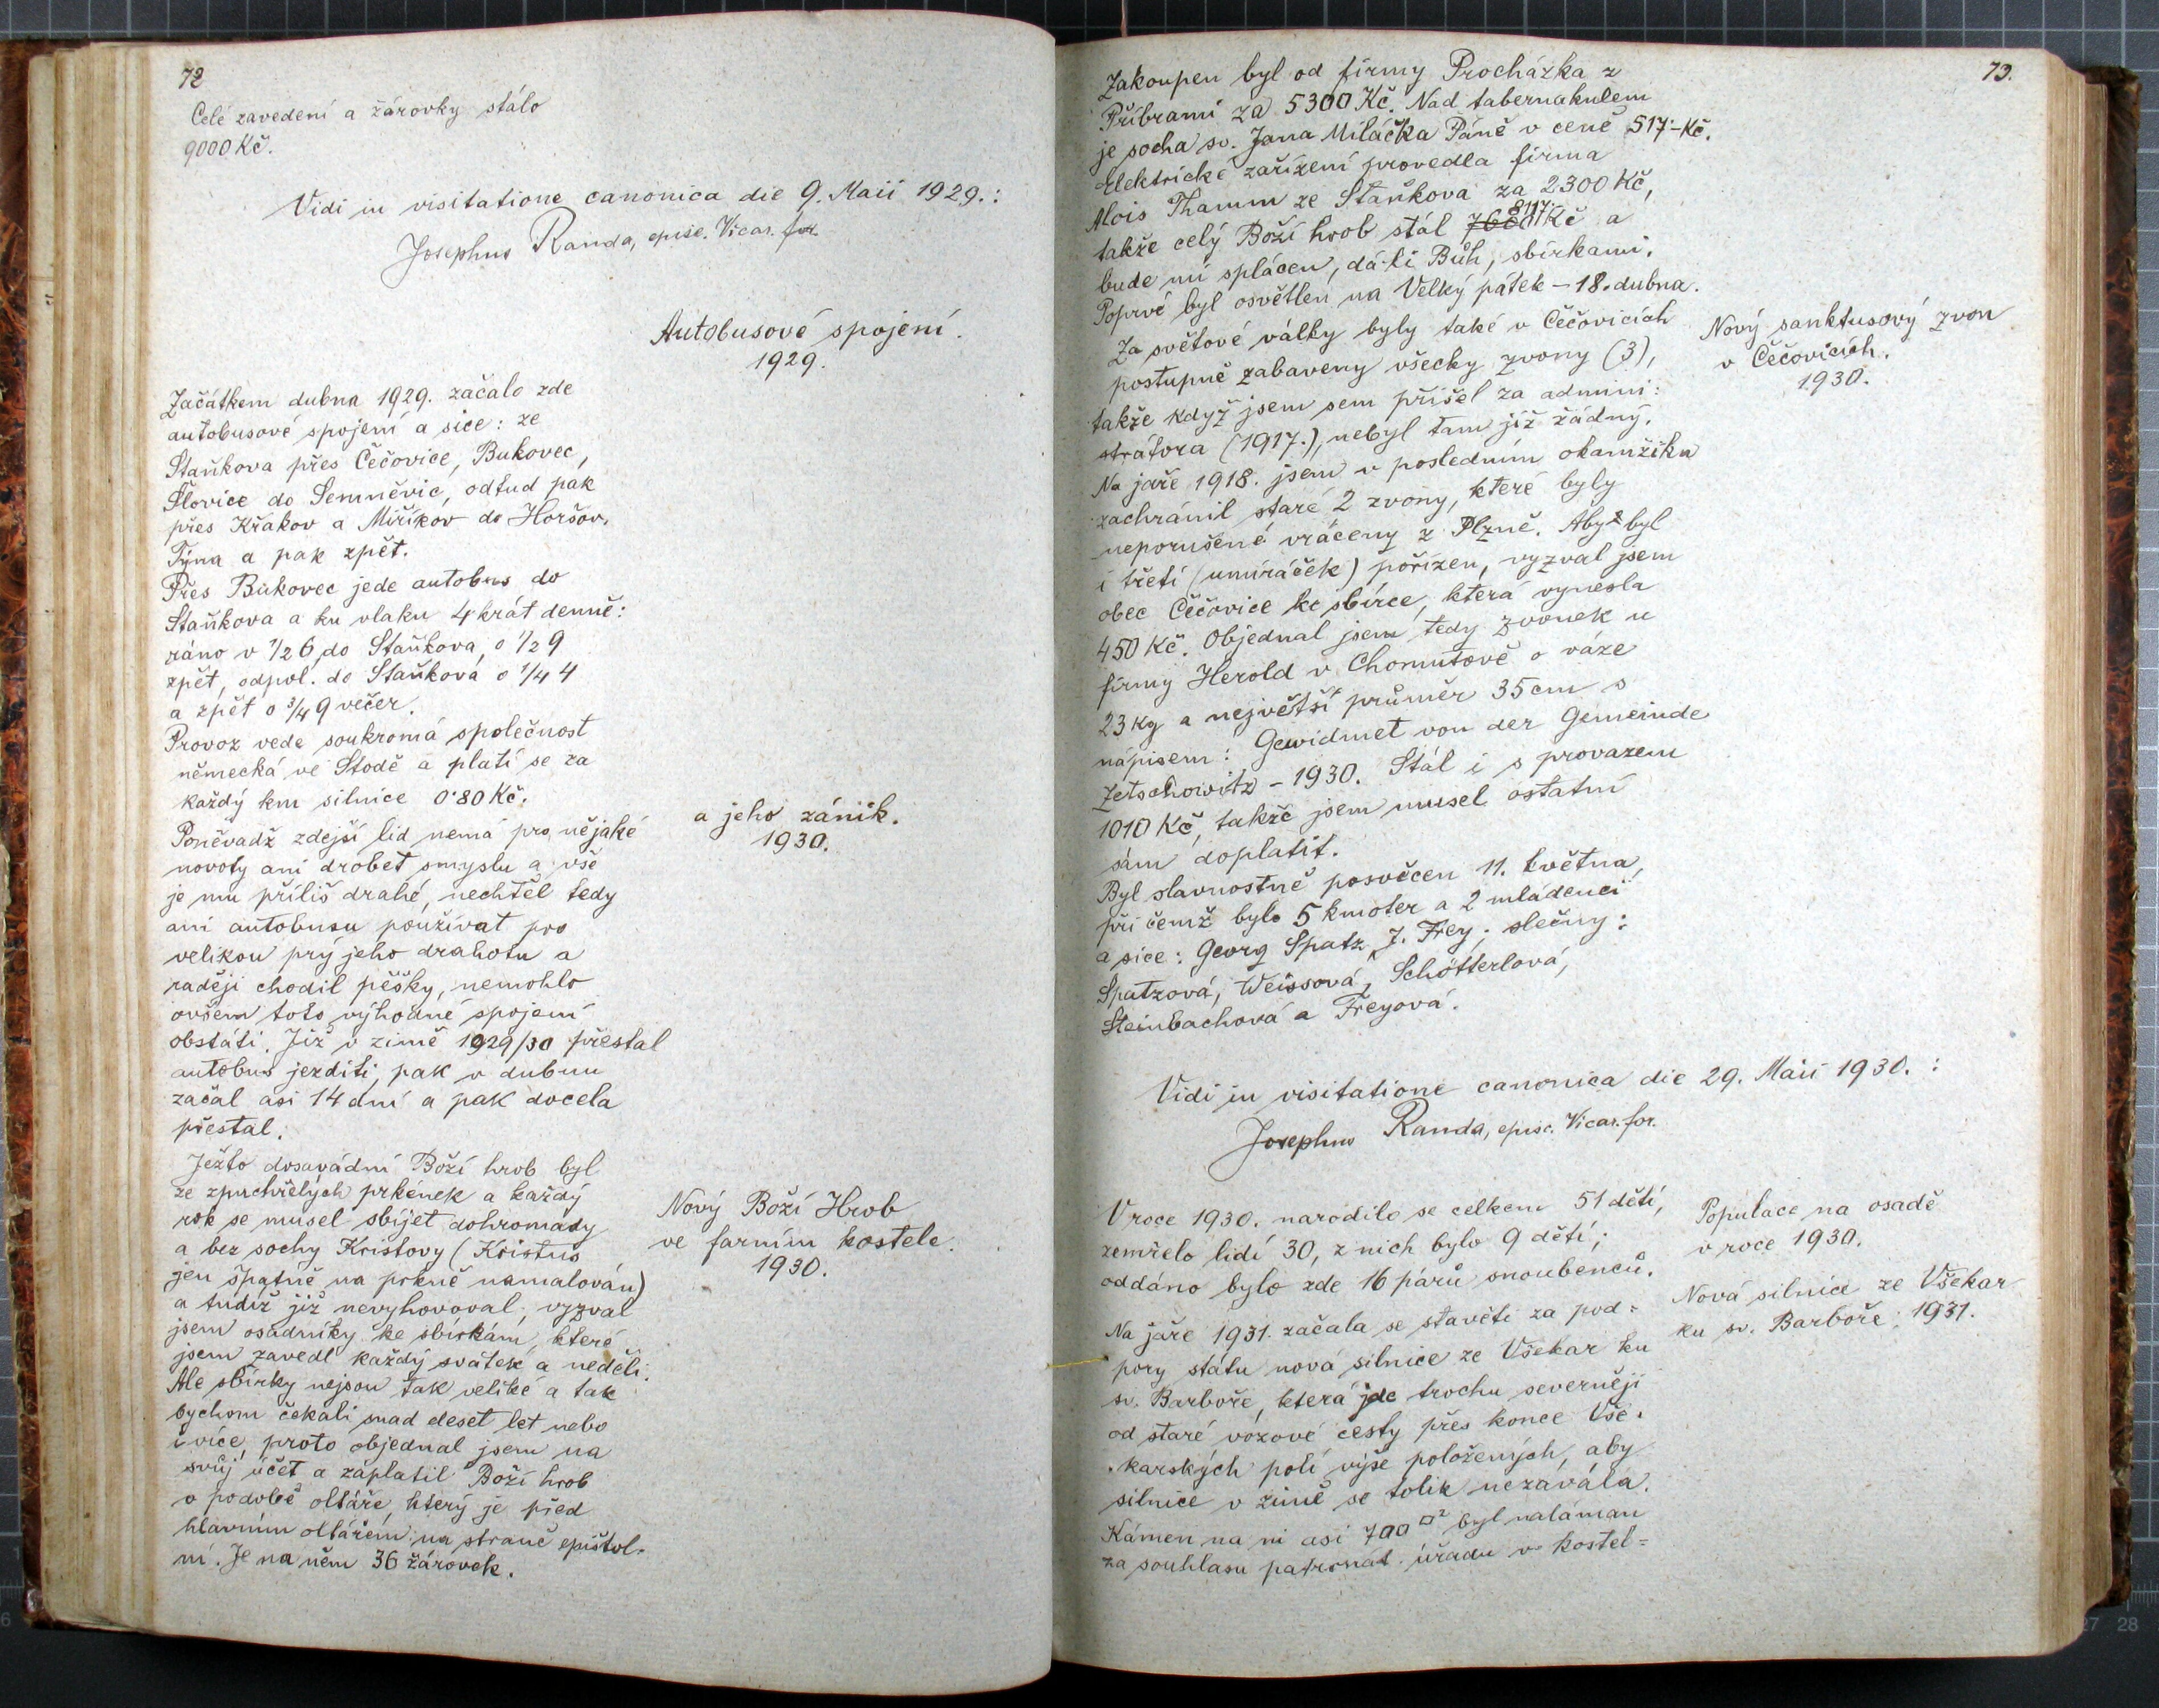 72
Celé zavedení a žárovky stálo
9000 Kč.
Vidi in visitatione canonica die 9. Maii 1929.:
Josephus Randa, episc. Vicar. for.
Autobusové spojení.
1929.
Začátkem dubna 1929. začalo zde
autobusové spojení a sice: ze
Staňkova přes Čečovice, Bukovec,
Šlovice do Semněvic, odtud pak
přes Křakov a Miřikov do Horšov.
Týna a pak zpět.
Přes Bukovec jede autobus do
Staňkova a ku vlaku 4 krát denně:
ráno v 1/2 6 do Staňkova, o 1/2 9
zpět, odpol. do Staňkova o 1/4 4
a zpět o 3/4 9 večer.
Provoz vede soukromá společnost
německá ve Stodě a platí se za
každý km silnice 0·80 Kč.
a jeho zánik.
1930.
Poněvadž zdejší lid nemá pro nějaké
novoty ani drobet smyslu a vše
je mu příliš drahé, nechtěl tedy
ani autobusu používat pro
velikou prý jeho drahotu a
raději chodil pěšky, nemohlo
ovšem toto výhodné spojení
obstáti. Již v zimě 1929/30 přestal
autobus jezditi, pak v dubnu
začal asi 14 dní a pak docela
přestal.
Nový Boží Hrob
ve farním kostele.
1930.
Ježto dosavádní Boží hrob byl
ze zpuchřelých prkének a každý
rok se musel sbíjet dohromady
a bez sochy Kristovy (Kristus
jen špatně na prkně namalován)
a tudíž již nevyhovoval, vyzval
jsem osadníky ke sbírkám, které
jsem zavedl každý svátek a neděli.
Ale sbírky nejsou tak veliké a tak
bychom čekali snad deset let nebo
i více, proto objednal jsem na
svůj účet a záplatil Boží hrob
v podobě oltáře, který je před
hlavním oltářem na straně epištol-
ní. Je na něm 36 žárovek.
73.
Zakoupen byl od firmy Procházka z
Příbrami za 5300 Kč. Nad tabernakulem
je socha sv. Jana Miláčka Páně v ceně 517·-Kč.
Elektrické zařízení provedla firma
Alois Thamm ze Staňkova za 2300 Kč,
takže celý Boží hrob stál 8117·- Kč a
bude mi splácen, dá-li Bůh, sbírkami.
Poprvé byl osvětlen na Velký pátek - 18. dubna.
Nový sanktusový zvon
v Čečovicích.
1930.
Za světové války byly také v Čečovicích
postupně zabaveny všecky zvony (3),
takže když jsem sem přišel za admini:
strátora (1917.), nebyl tam již žádný.
Na jaře 1918. jsem v posledním okamžiku
zachránil staré 2 zvony, které byly
neporušené vráceny z Plzně. Aby byl
i třetí (umíráček) pořízen, vyzval jsem
obec Čečovice ke sbírce, která vynesla
450 Kč. Objednal jsem tedy zvonek u
firmy Herold v Chomutově o váze
23 kg a největší průměr 35 cm s
nápisem: Gewidmet von der Gemeinde
Zetschowitz - 1930. Stál i s provazem
1010 Kč, takže jsem musel ostatní
sám doplatit.
Byl slavnostně posvěcen 11. května,
při čemž bylo 5 kmoter a 2 mládenci
a sice: Georg Spatz, J. Frey; slečny:
Spatzová, Weissová, Schötterlová,
Steinbachová a Freyová.
Vidi in visitatione canonica die 29. Maii 1930. :
Josephus Randa, episc. Vicar. for.
Populace na osadě
v roce 1930.
V roce 1930. narodilo se celkem 51 dětí,
zemřelo lidí 30, z nich bylo 9 dětí;
oddáno bylo zde 16 párů snoubenců.
Nová silnice ze Všekar
ku sv. Barboře; 1931.
Na jaře 1931. začala se stavěti za pod=
pory státu nová silnice ze Všekar ku
sv. Barboře, která jde trochu severněji
od staré vozové cesty přes konce Vše-
-karských polí výše položených, aby
silnice v zimě se tolik nezavála.
Kámen na ni asi 700 □² byl naláman
za souhlasu patronát. úřadu v kostel=